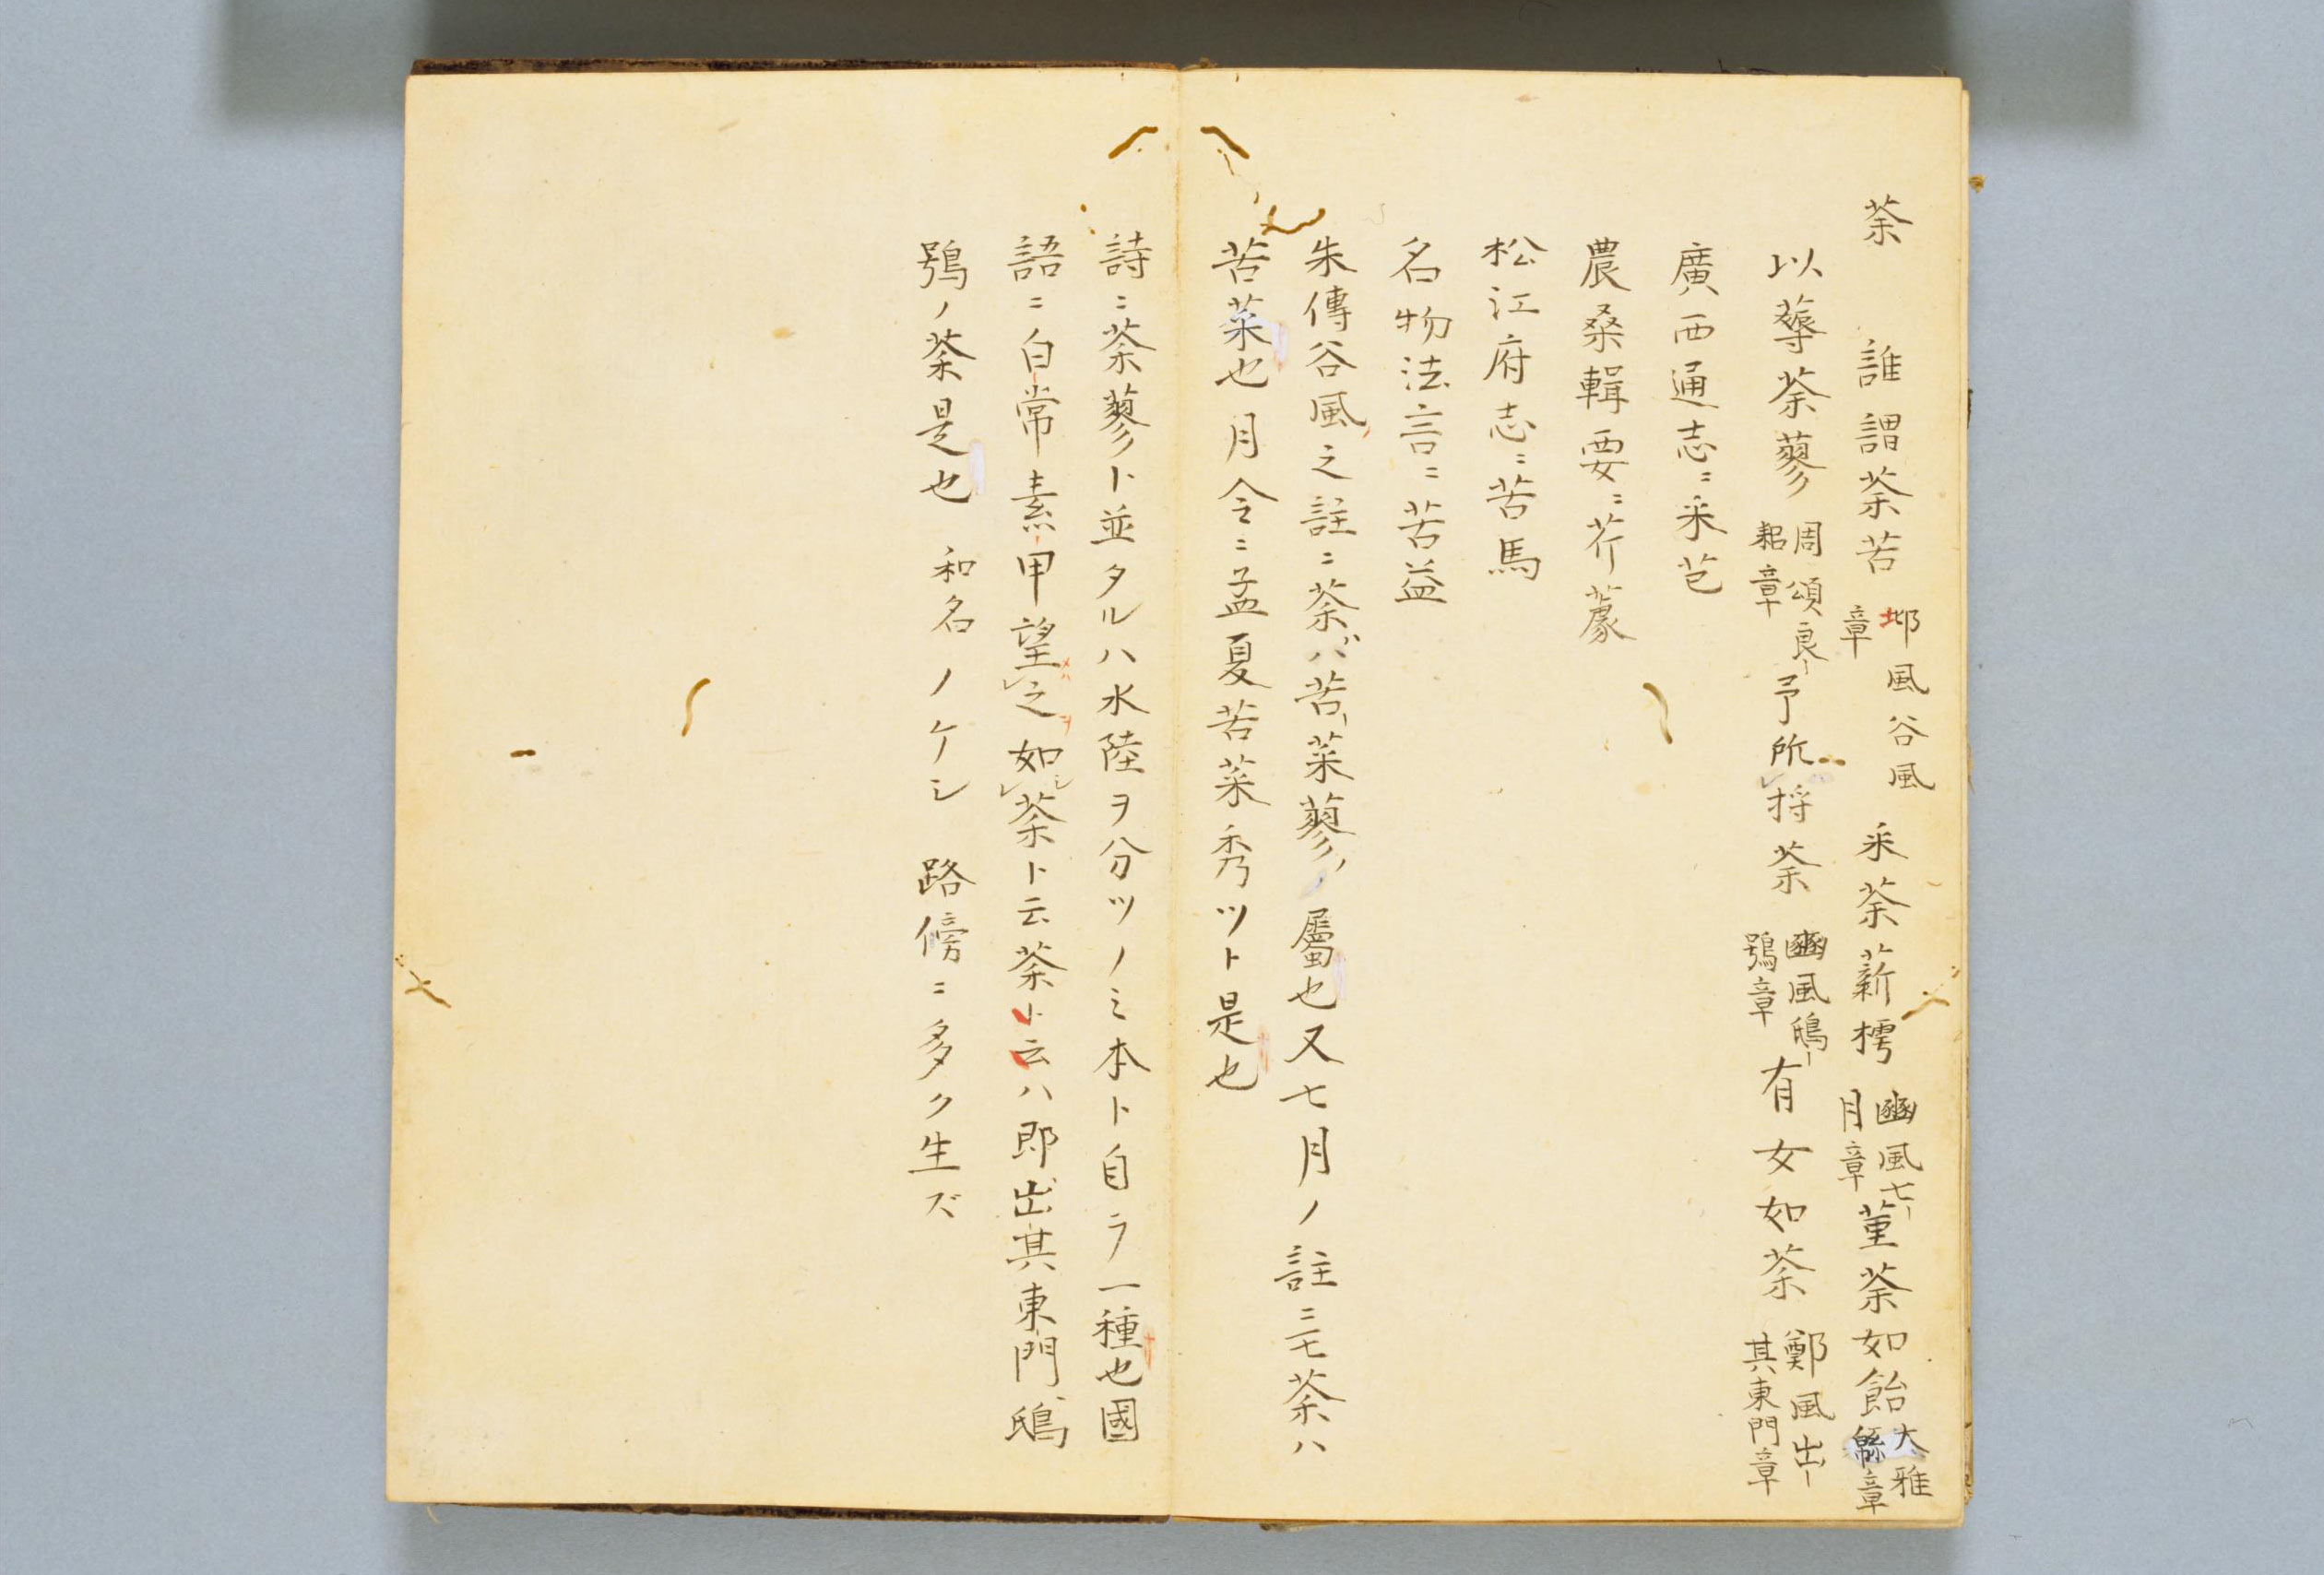 荼　誰謂荼苦 邶風谷風章 采荼薪樗 豳風七-月章 菫荼如飴 大雅緜章
以薅荼蓼 周頌良-耜章 予所㆑捋荼 豳風鴟-鴞章 有女如荼 鄭風出-其東門章
廣西通志ニ采芑
農桑輯要ニ芥䕲
松江府志ニ苦馬
名物法言ニ苦益
朱傳谷風之註ニ荼ハ苦-菜蓼ノ屬也又七月ノ註ニモ荼ハ
苦菜也月令ニ孟夏苦菜秀ツト是也
詩ニ荼蓼ト並タルハ水陸ヲ分ツノミ本ト自ラ一種也國
語ニ白常素甲望㆑之如㆑荼ト云荼ト云ハ即出其東門鴟
鴞ノ荼是也　和名ノケシ　路傍ニ多ク生ズ